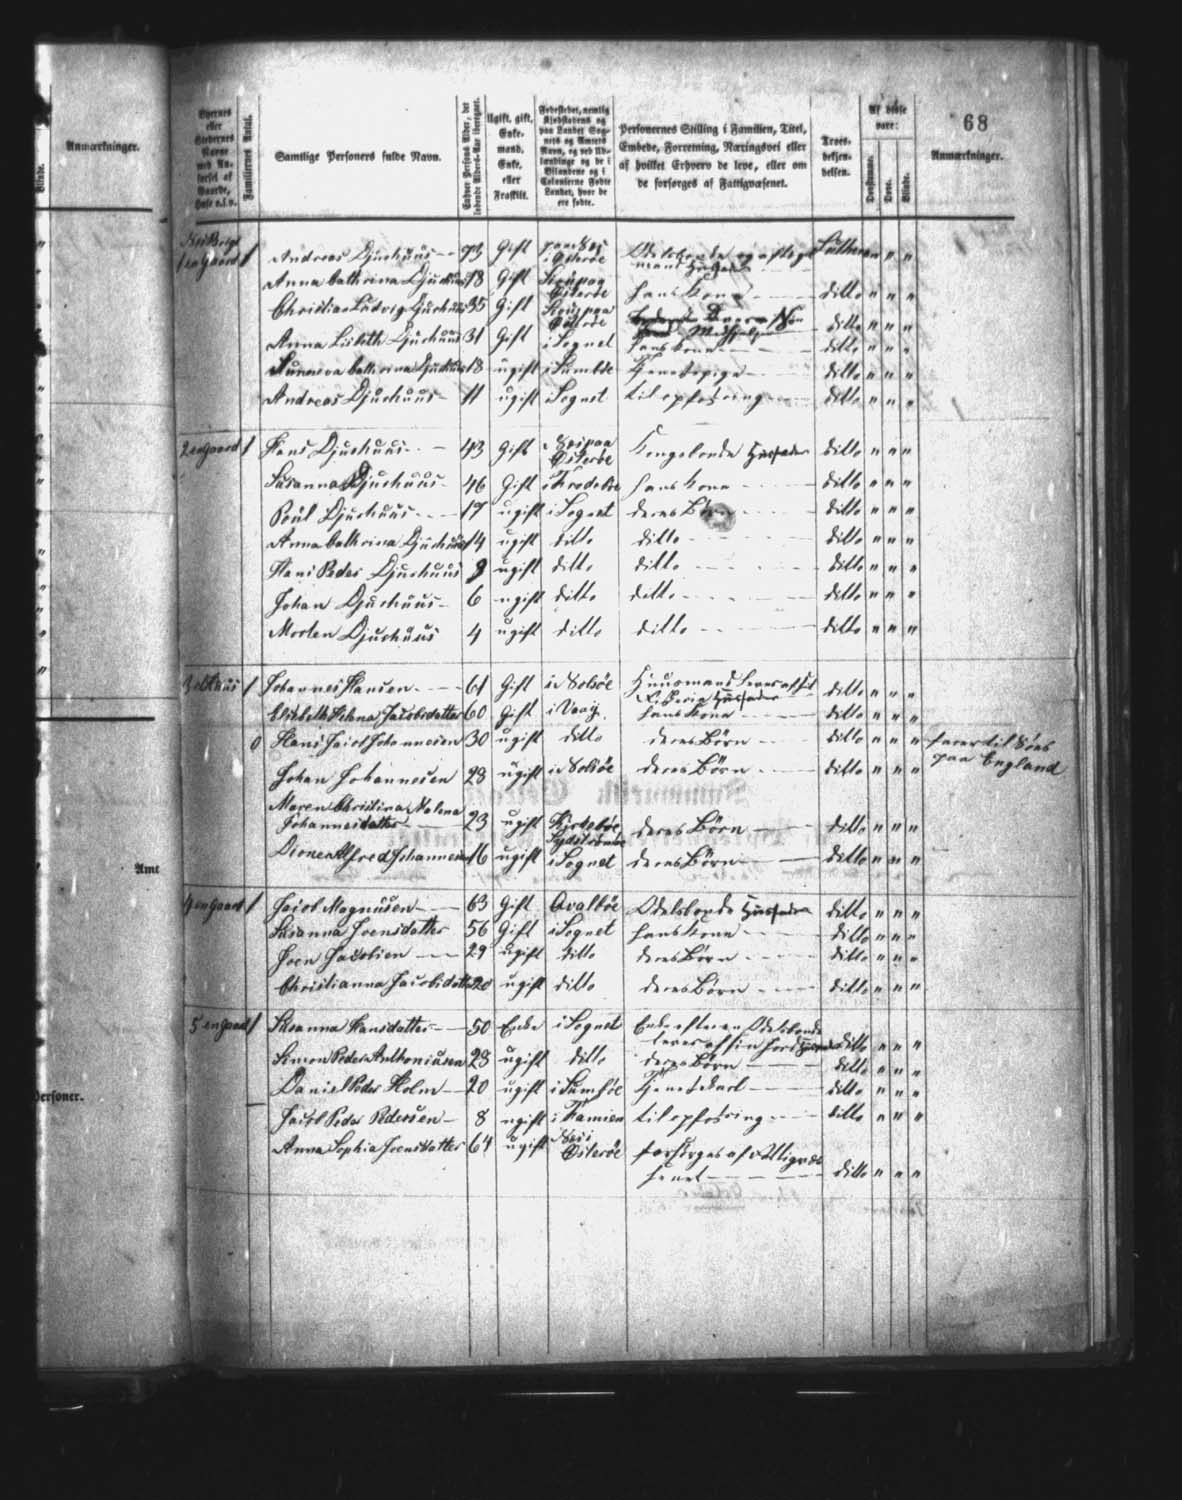 Anmærkninger.
Blinde.
Amt
Personer.
68
Byernes eller Stedernes Navne med Anførsel af Gaarde, Huse o.s.v.
Familiernes Antal.
Samtlige Personers fulde Navn.
Enhver Persons Alder, det løbende Alders-Aar iberegnet.
Ugift, gift, Enkemand, Enke, eller Fraskilt.
Fødestedet, nemlig Kjøbstadens og paa Landet Sognets og Amtets Navn, og ved Udlændinge og de i Bilandene og i Colonierne Fødte Landet, hvor de ere fødte.
Personernes Stilling i Familien, Titel, Embede, Forretning, Næringsvei eller af hvilket Erhverv de leve, eller om de forsørges af Fattigvæsenet.
Troesbekjendelsen.
Af disse vare:
Døvstumme.
Døve.
Blinde.
Anmærkninger.
1 en Gaard 1 Andreas Djurhuus 73 Gift Østerøe Luthersk " " "
Anna Cathrina Djurhuus 78 Gift Østerøe hans Kone ditto " " "
Christian Ludvig Djurhuus 35 Gift Østerøe Søn ditto " " "
Anna Lisbeth Djurhuus 31 Gift i Sognet hans Kone ditto " " "
Sunneva Cathrina Djurhuus 18 ugift i Sumbøe Tjenestepige ditto " " "
Andreas Djurhuus 11 ugift i Sognet til opfostring ditto " " "
2 en Gaard 1 Hans Djurhuus 43 Gift Østerøe Kongsbonde Huusfader ditto " " "
Susanna Djurhuus 46 Gift i Frodebøe hans Kone ditto " " "
Poul Djurhuus 17 ugift i Sognet deres Børn ditto " " "
Anna Cathrina Djurhuus 14 ugift ditto ditto ditto " " "
Hans Peder Djurhuus 8 ugift ditto ditto ditto " " "
Johan Djurhuus 6 ugift ditto ditto ditto " " "
Morten Djurhuus 4 ugift ditto ditto ditto " " "
3 et Huus 1 Johannes Hansen 61 Gift i Nolsøe Huusmand lever af sit Fiskerie Huusfader ditto " " "
Elisbeth Helena Jacobsdatter 60 Gift i Vaag hans Kone ditto " " "
0 Hans Jacob Johannesen 30 ugift ditto deres Børn ditto " " " farer til Søes paa England
Johan Johannesen 28 ugift i Nolsøe deres Børn ditto " " "
Maren Christina Malena Johannesdatter 23 ugift Kirkebøe Sydstrømøe deres Børn ditto " " "
Alfred Johannesen 16 ugift i Sognet deres Børn ditto " " "
4 en Gaard 1 Jacob Magnusen 63 Gift Qvalbøe Odelsbonde Huusfader ditto " " "
Susanna Joensdatter 56 Gift i Sognet hans Kone ditto " " "
Joen Jacobsen 29 ugift ditto deres Børn ditto " " "
Christianna Jacobsdatter 20 ugift ditto deres Børn ditto " " "
5 en Gaard 1 Susanna Hansdatter 50 Enke i Sognet Enke efter en Odelsbonde lever af sin Jord ditto " " "
Simon Peder Anthoniusen 28 ugift ditto deres Børn ditto " " "
Daniel Peder Holm 20 ugift i Sumbøe Tjenestekarl ditto " " "
Jacob Peder Pedersen 8 ugift i Famien til opfostring ditto " " "
Anna Sophia Joensdatter 64 ugift Østerøe forsørges af Fattigvæsenet ditto " " "